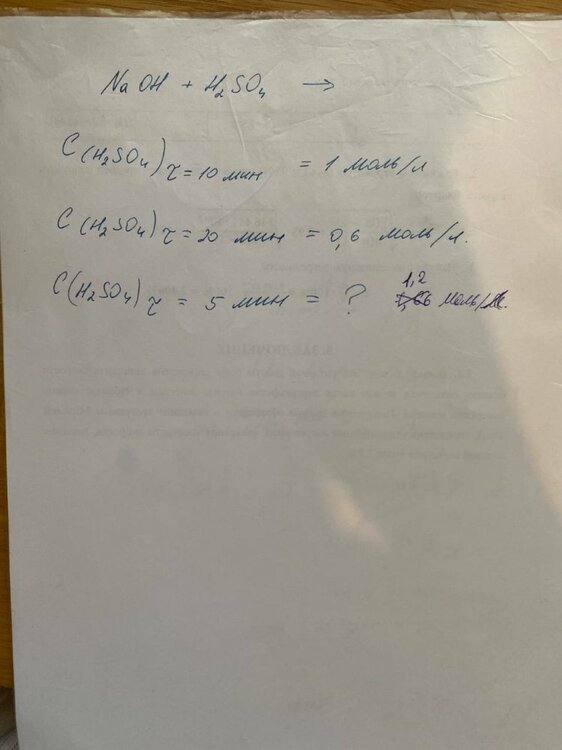 NaOH + H₂SO₄ →
C(H₂SO₄) τ = 10 мин = 1 моль/л
C(H₂SO₄) τ = 20 мин = 0,6 моль/л.
C(H₂SO₄) τ = 5 мин = ? 1,2 моль/л.